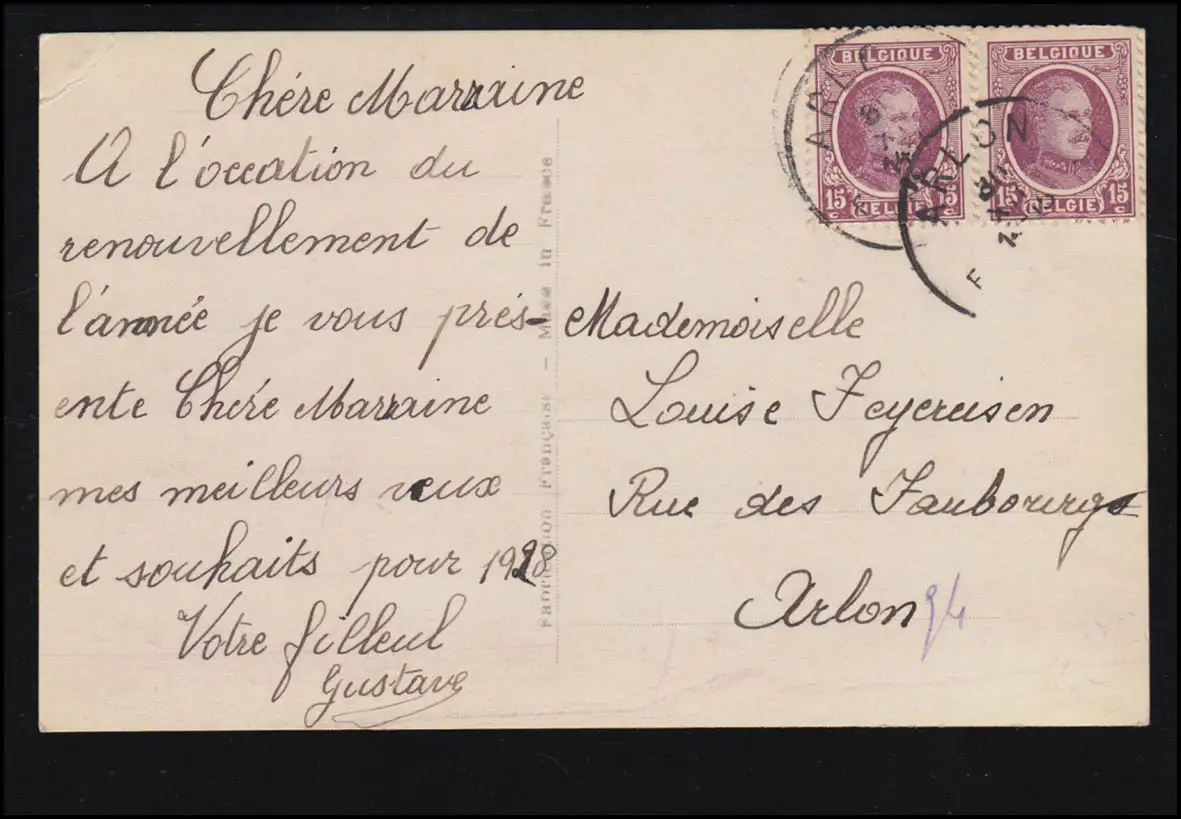 Chére Marraine
A l'occation du
renouvellement de
l'année je vous prés-
ente Chére Marraine
mes meilleurs veux
et souhaits pour 1928
Votre filleul
Gustave
Fabrication Française - Made in France
BELGIQUE
15 c
BELGIE
BELGIQUE
15 c 15 c
BELGIE
ARLON
ARLON
Mademoiselle
Louise Feyereisen
Rue des Faubourgs
Arlon 94